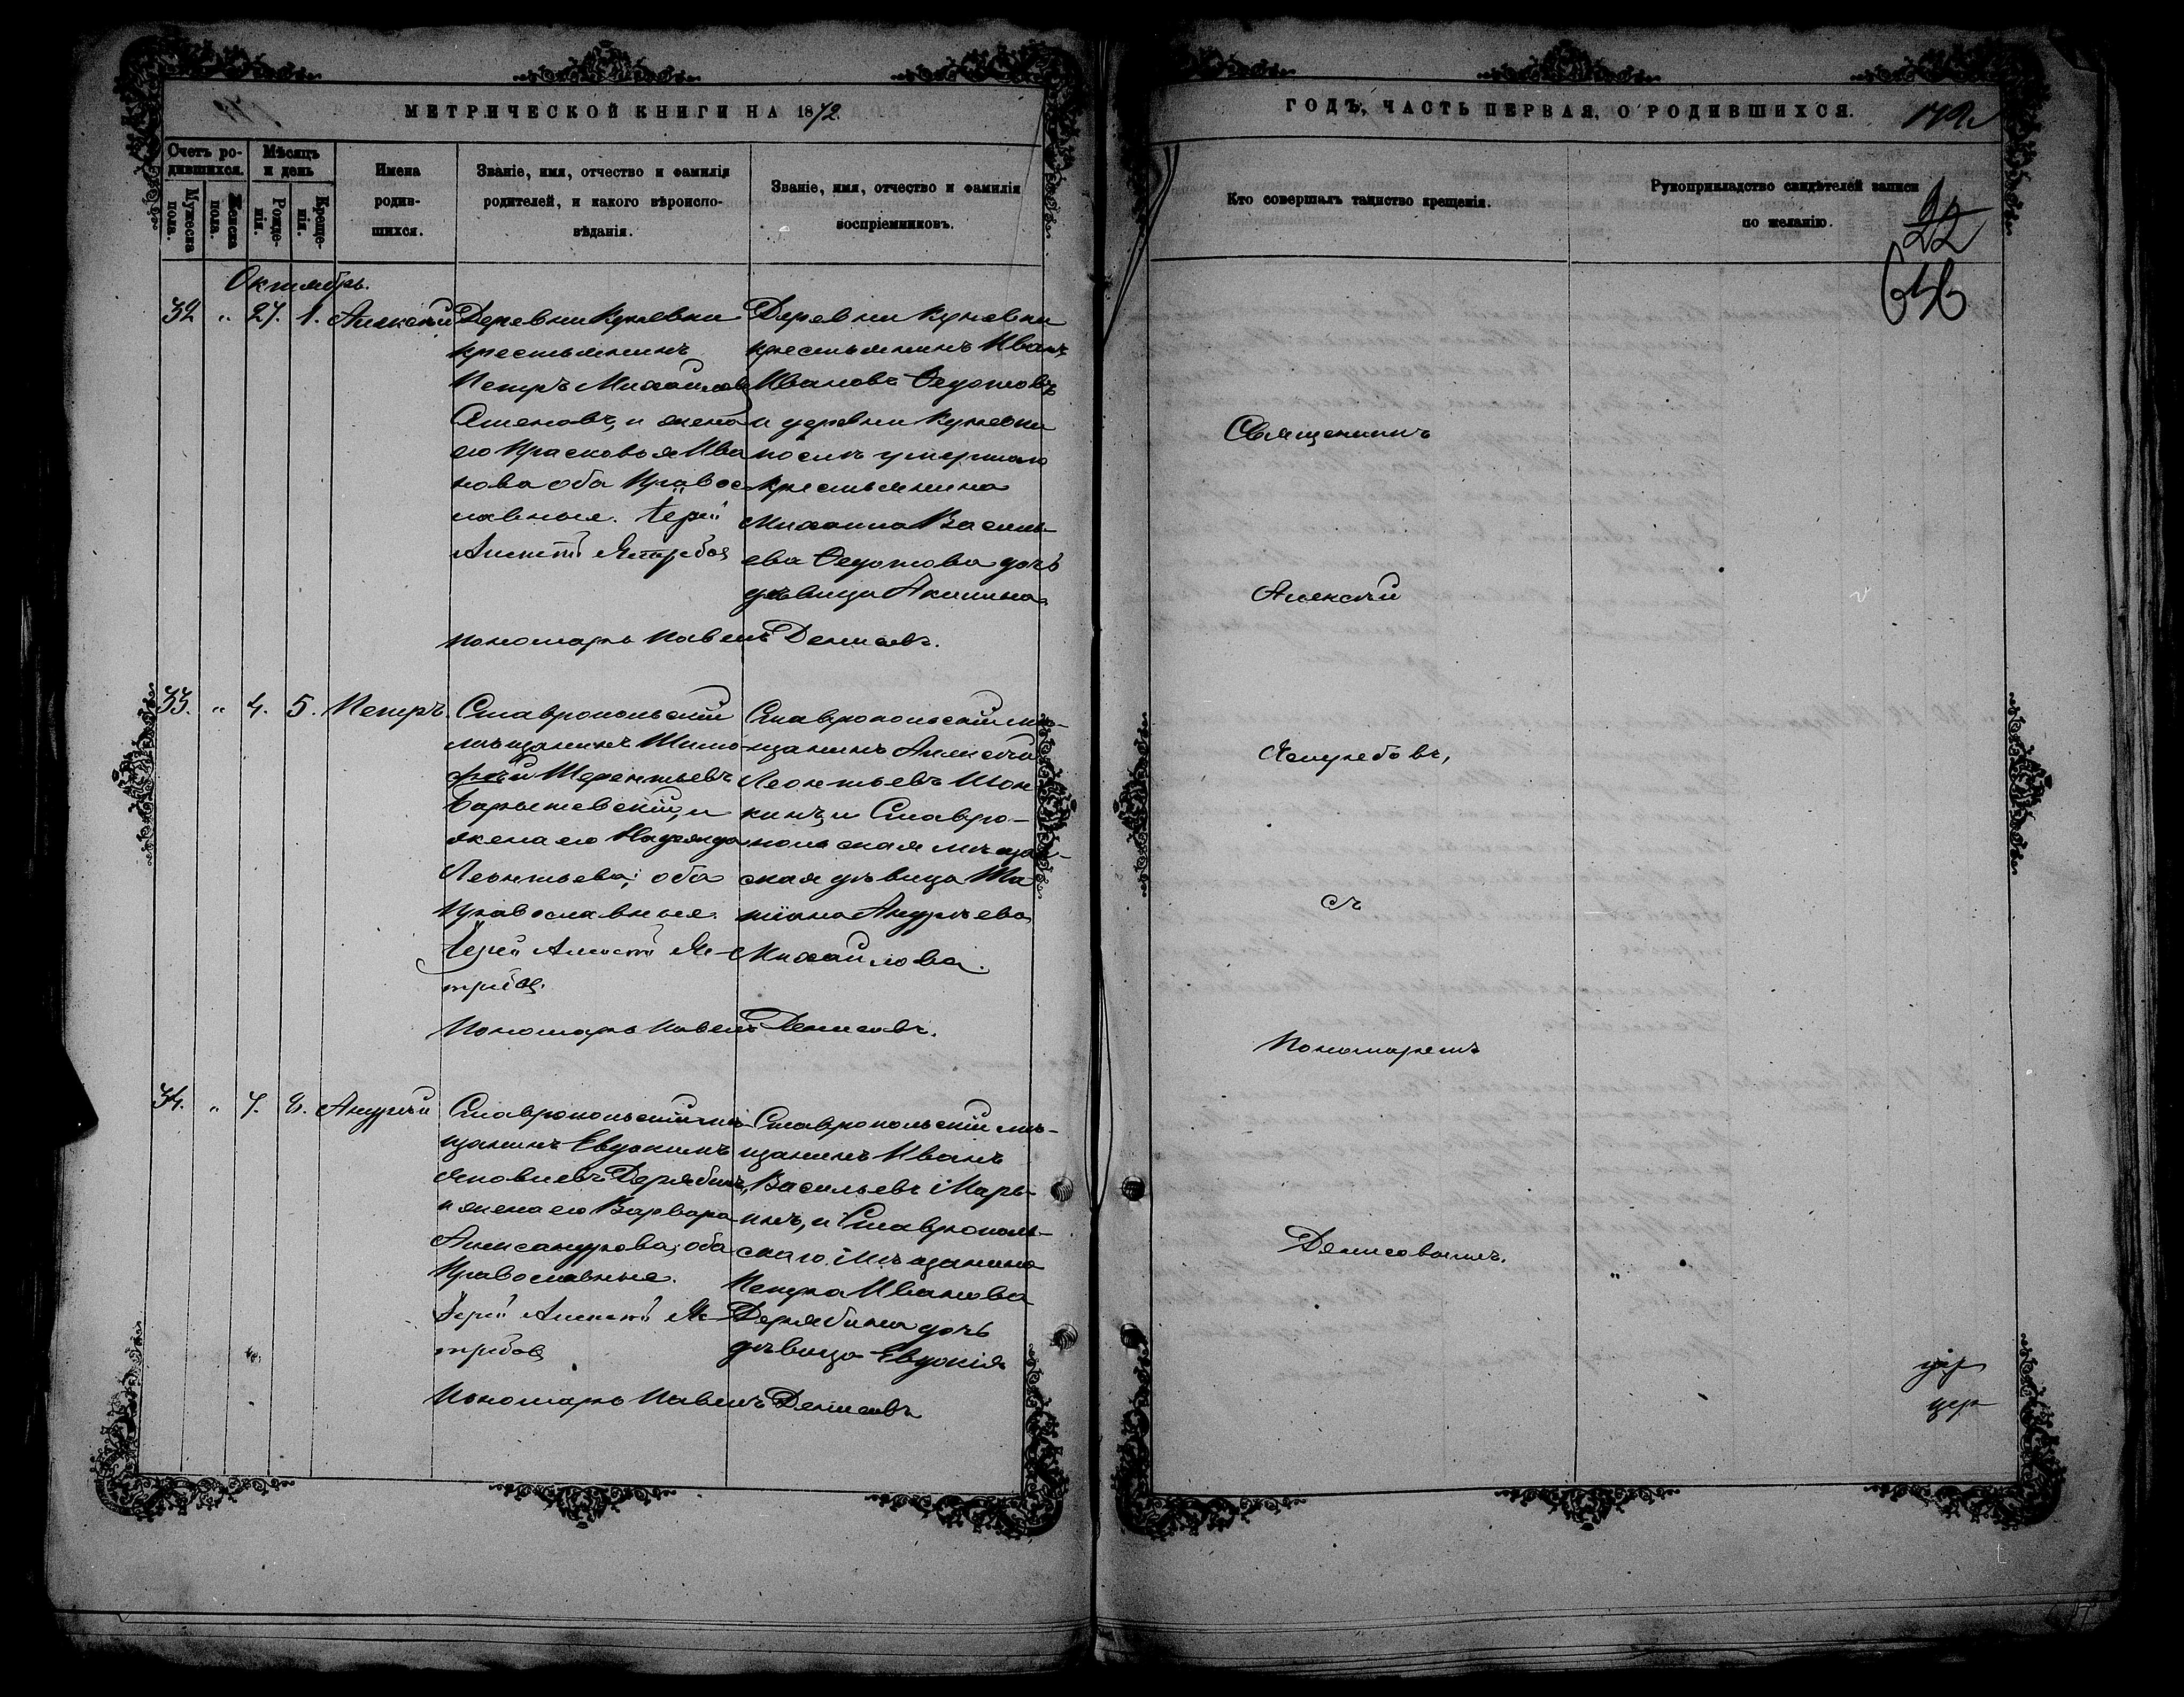 МЕТРИЧЕСКОЙ КНИГИ НА 1872
Счетъ ро-
дившихся.
Мужеска
пола.
Женска
пола.
Мѣсяцъ
и день
Рожде-
нія.
Креще-
нія.
Имена
родив-
шихся.
Званіе, имя, отчество и фамилія
родителей, и какого вѣроиспо-
вѣданія.
Званіе, имя, отчество и фамилія
воспріемниковъ.
Октябрь.
32 " 27. 1. Алексѣй
Деревни
крестьянинъ
Петръ Михайловъ
и жена
его Прасковья Ива
нова оба Правос
лавные. Іерей
Алексѣй Ястребовъ
Деревни
крестьянинъ Иванъ
Ивановъ Ѳедотовъ
и деревни
умершаго
крестьянина
Михаила Василь-
ева Ѳедотова дочь
дѣвица Акилина
Пономарь Павелъ Денисовъ.
33. " 4. 5. Петръ.
Ставропольскій
мѣщанинъ Тимо
фѣй Терентьевъ
и
жена его Надежда
Леонтьева; оба
Православные.
Іерей Алексѣй Яс-
требовъ.
Ставропольскій мѣ-
щанинъ Алексѣй
Леонтьевъ
и Ставро-
польская мѣщан-
ская дѣвица Та
тіана Андреева
Михайлова.
Пономарь Павелъ Денисовъ.
34. " 7. 8. Андрей
Ставропольскій мѣ
щанинъ Евдокимъ
Яковлевъ Дерябинъ,
и жена его Варвара
Александрова; оба
Православные.
Іерей Алексѣй Яс-
требовъ
Ставропольскій мѣ-
щанинъ Иванъ
Васильевъ Марь-
инъ, и Ставрополь-
скаго мѣщанина
Петра Иванова
Дерябина дочь
дѣвица Евдокія
Пономарь Павелъ Денисовъ
ГОДЪ, ЧАСТЬ ПЕРВАЯ, О РОДИВШИХСЯ.
Кто совершалъ таинство крещенія.
Рукоприкладство свидѣтелей записи
по желанію.
22
Священникъ
Алексѣй
Ястребовъ,
съ
Пономаремъ
Денисовымъ.